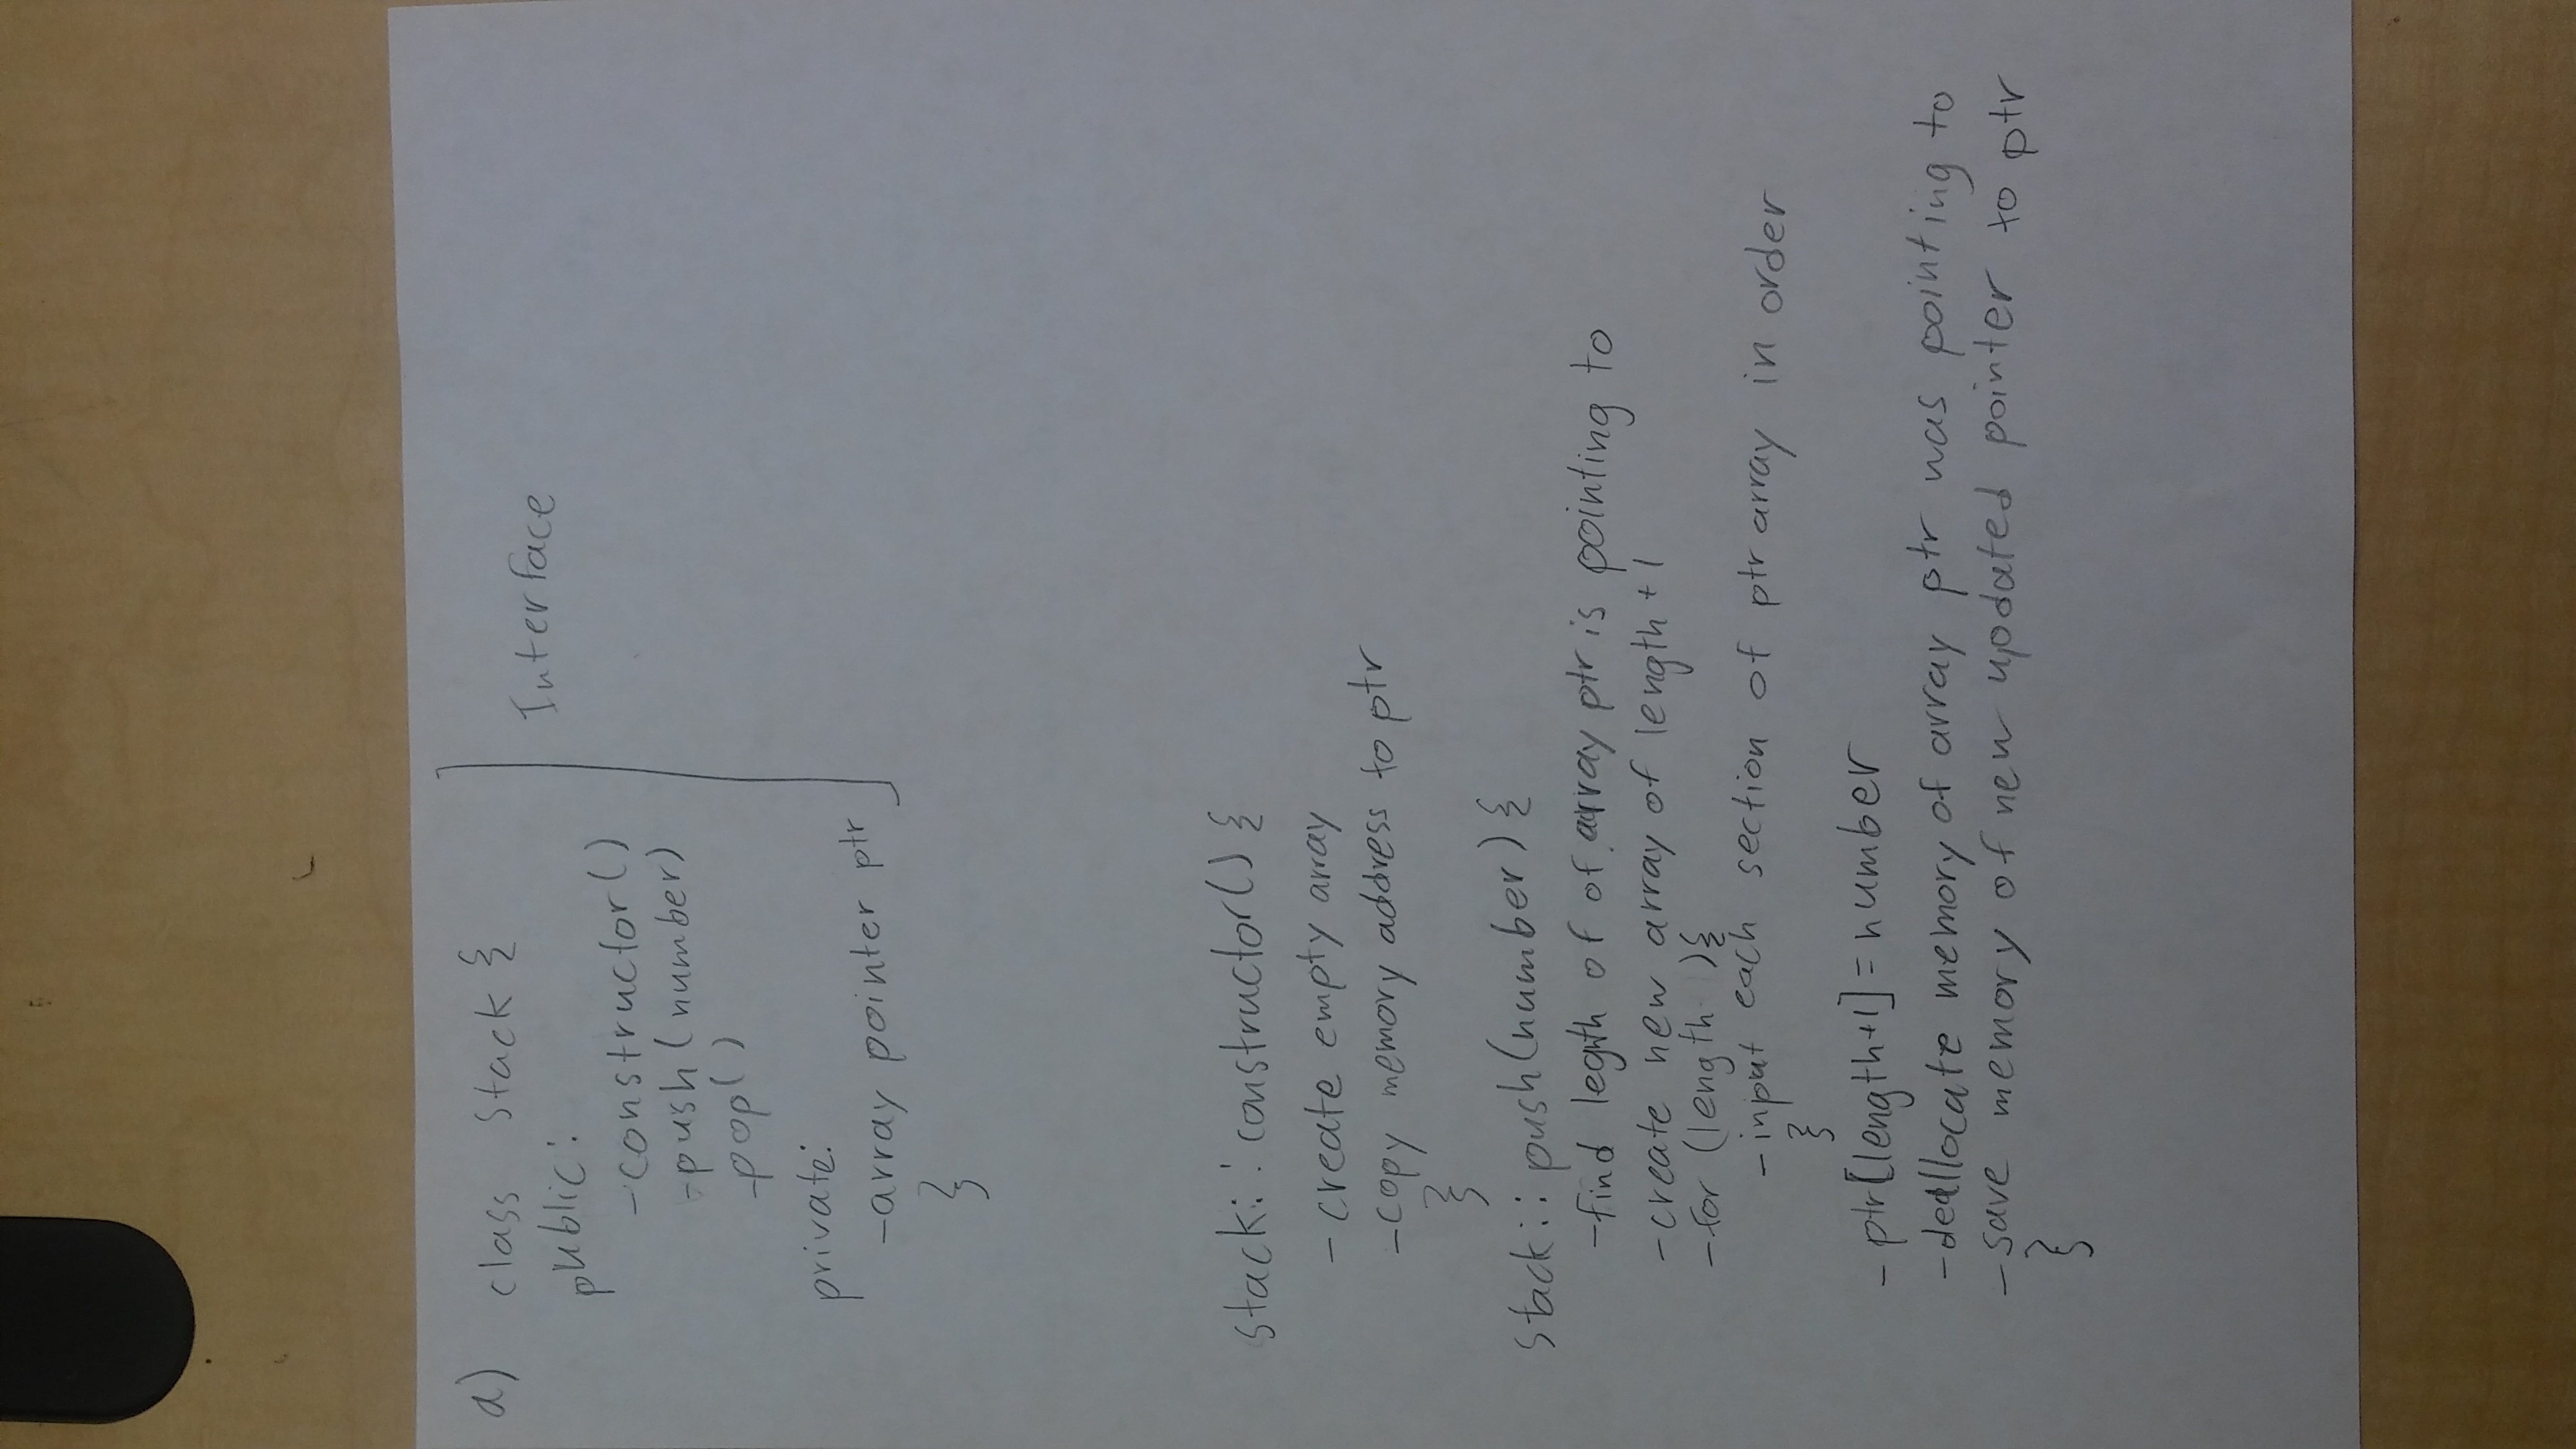 a) class Stack {
public:
-constructor()
-push(number)
-pop()
private:
-array pointer ptr
}
Interface
stack::constructor() {
- create empty array
-copy memory address to ptr
}
stack::push(number) {
-find legnth of of array ptr is pointing to
-create new array of length+1
-for (length ){
-input each section of ptr array in order
}
- ptr[length+1] = number
-deallocate memory of array ptr was pointing to
-save memory of new updated pointer to ptr
}